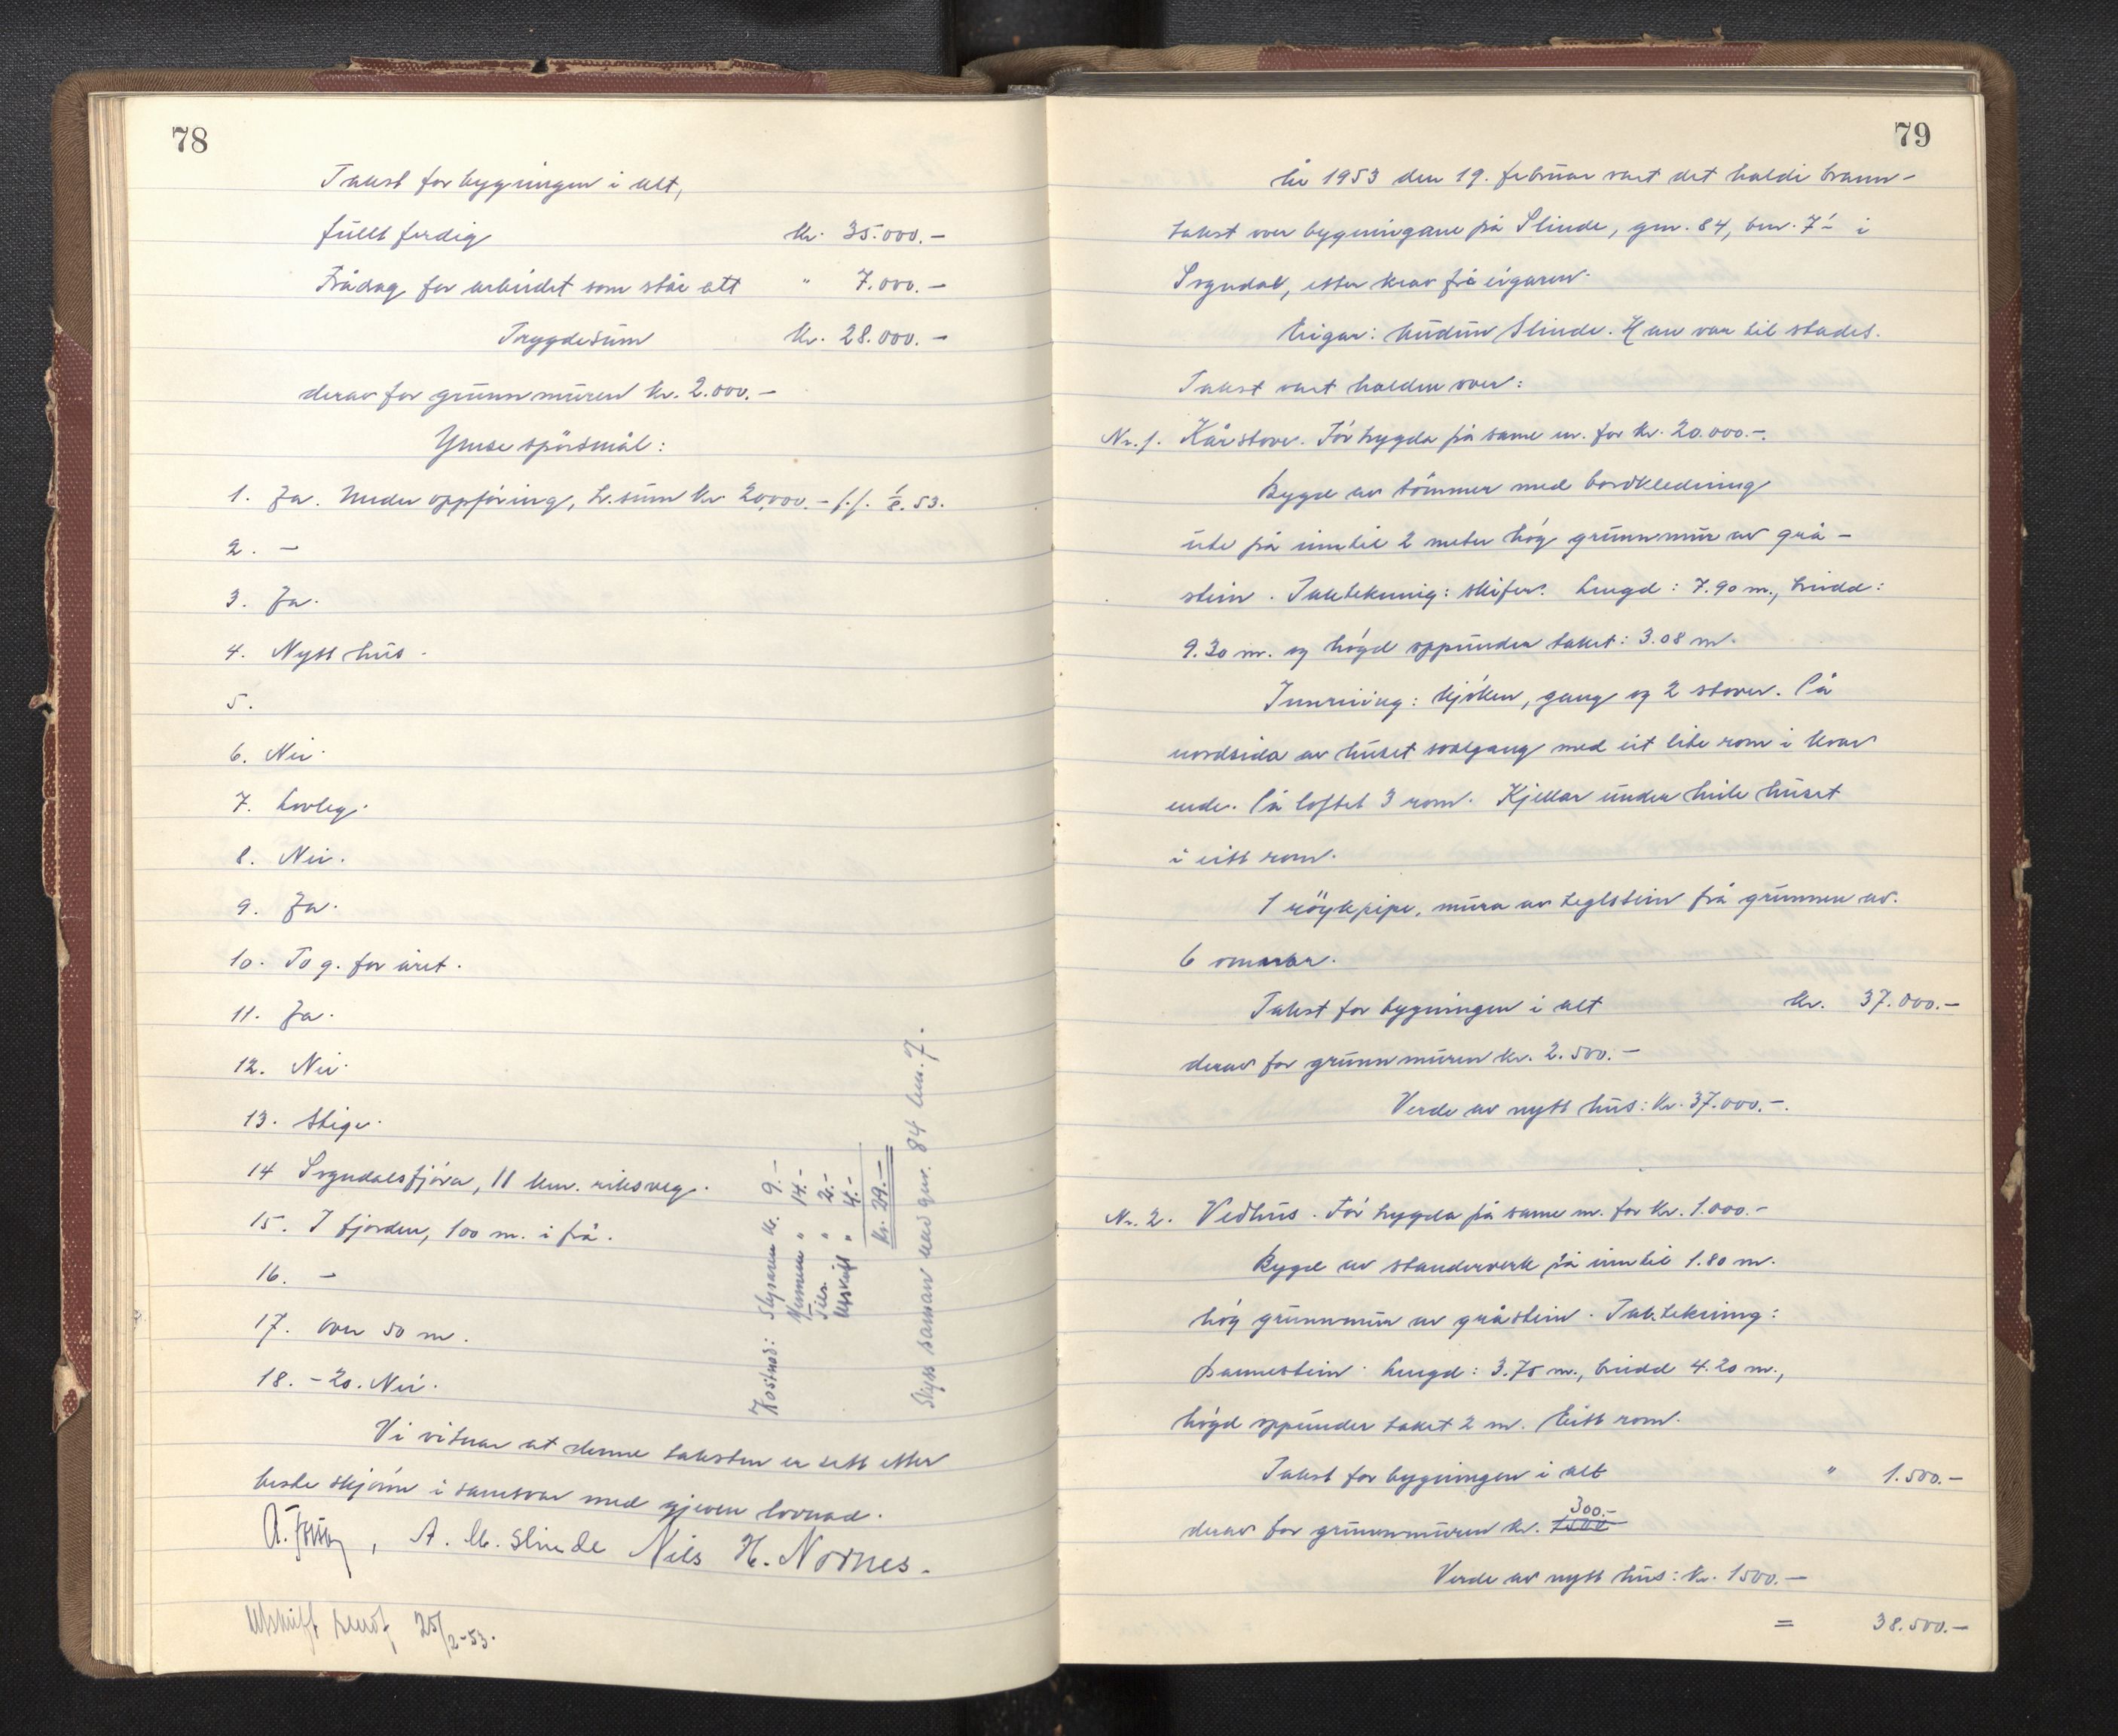 78
Takst for bygningen i alt,
fullt ferdig kr. 35.000.-
Frådrag for arbeidet som står att " 7.000.-
Trygdesum kr. 28.000.-
derav for grunnmuren kr. 2.000.-
Ymse spörsmål:
1. Ja. Under oppföring, tr.sum kr. 20.000.- f.f. 1/2. 53.
2. -
3. Ja.
4. Nytt hus.
5.
6. Nei.
7. Lovleg.
8. Nei.
9. Ja.
10. To g. for året.
11. Ja.
12. Nei.
13. Stige.
14 Sogndalsfjöra, 11 km. riksveg.
15. I fjorden, 100 m. i frå.
16. -
17. Over 50 m.
18. - 20. Nei.
Vi vitnar at denne taksten er sett etter
beste skjönn i samsvar med gjeven lovnad.
A. M. Slinde Nils H. Nornes.
Utskrift sendt 25/2-53.
Kostnad: Skjönn kr. 9.-
" 14.-
" 2.-
Utskrift " 4.-
Kr. 29.-
Skyss saman med gnr. 84 bnr. 7.
79
År 1953 den 19. februar vart det haldi brann-
takst over bygningane på Slinde, gnr. 84, bnr. 7 i
Sogndal, etter krav frå eigaren.
Eigar: Audun Slinde. Han var til stades.
Takst vart halden over:
Nr. 1. Kårstove. För trygda på same nr. for kr. 20.000.-.
Bygd av tömmer med bordkledning
ute på inntil 2 meter hög grunnmur av grå-
stein. Taktekning: skifer. Lengd: 7.90 m., breidd:
9.30 m. og högd oppunder taket: 3.08 m.
Innreiing: kjöken, gang og 2 stover. På
nordsida av huset svalgang med eit lite rom i kvar
ende. På loftet 3 rom. Kjellar under heile huset
i eitt rom.
1 röykpipe, mura av teglstein frå grunnen av.
6 omnar.
Takst for bygningen i alt kr. 37.000.-
derav for grunnmuren kr. 2.500.-
Verde av nytt hus: kr. 37.000.-.
Nr. 2. Vedhus. För trygda på same nr. for kr. 1.000.-
Bygd av standerverk på inntil 1.80 m.
hög grunnmur av gråstein. Taktekning:
pannestein. Lengd: 3.75 m., breidd 4.20 m.,
högd oppunder taket 2 m. Eitt rom.
Takst for bygningen i alt " 1.500.-
300.-
derav for grunnmuren kr. 1500
Verde av nytt hus: kr. 1500.-
= 38.500.-